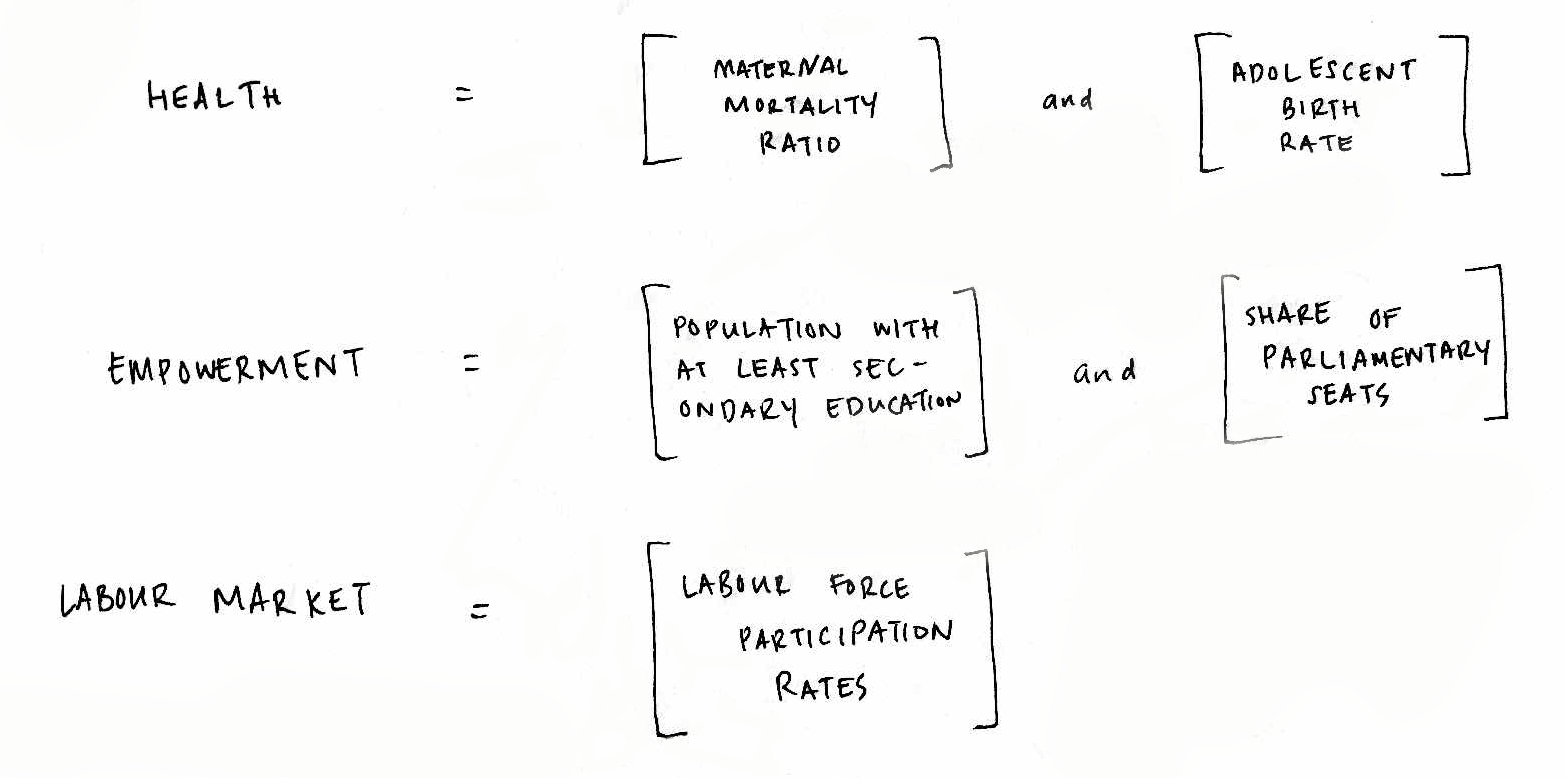 HEALTH = [ MATERNAL MORTALITY RATIO ] and [ ADOLESCENT BIRTH RATE ]
EMPOWERMENT = [ POPULATION WITH AT LEAST SEC-ONDARY EDUCATION ] and [ SHARE OF PARLIAMENTARY SEATS ]
LABOUR MARKET = [ LABOUR FORCE PARTICIPATION RATES ]